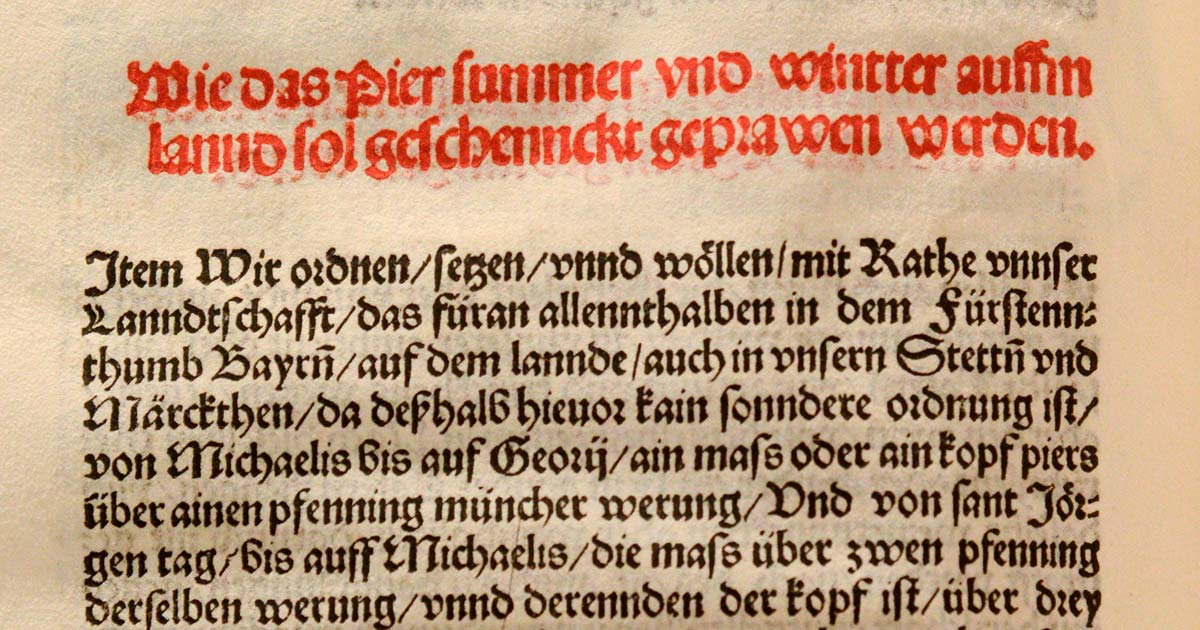 Wie das Pier summer vnd wintter auffm
lannd sol geschennckt geprawen werden.
Item Wir ordnen/setzen/vnnd wöllen/mit Rathe vnnser
Lanndtschafft/das füran allennthalben in dem Fürstenn⸗
thumb Bayrn̄/auf dem lannde/auch in vnsern Stettn̄ vnd
Märckthen/da deßhalb hieuor kain sonndere ordnung ist/
von Michaelis bis auf Georij/ain mass oder ain kopf piers
über ainen pfenning müncher werung/Vnd von sant Jör⸗
gen tag/bis auff Michaelis/die mass über zwen pfenning
derselben werung/vnnd derennden der kopf ist/über drey